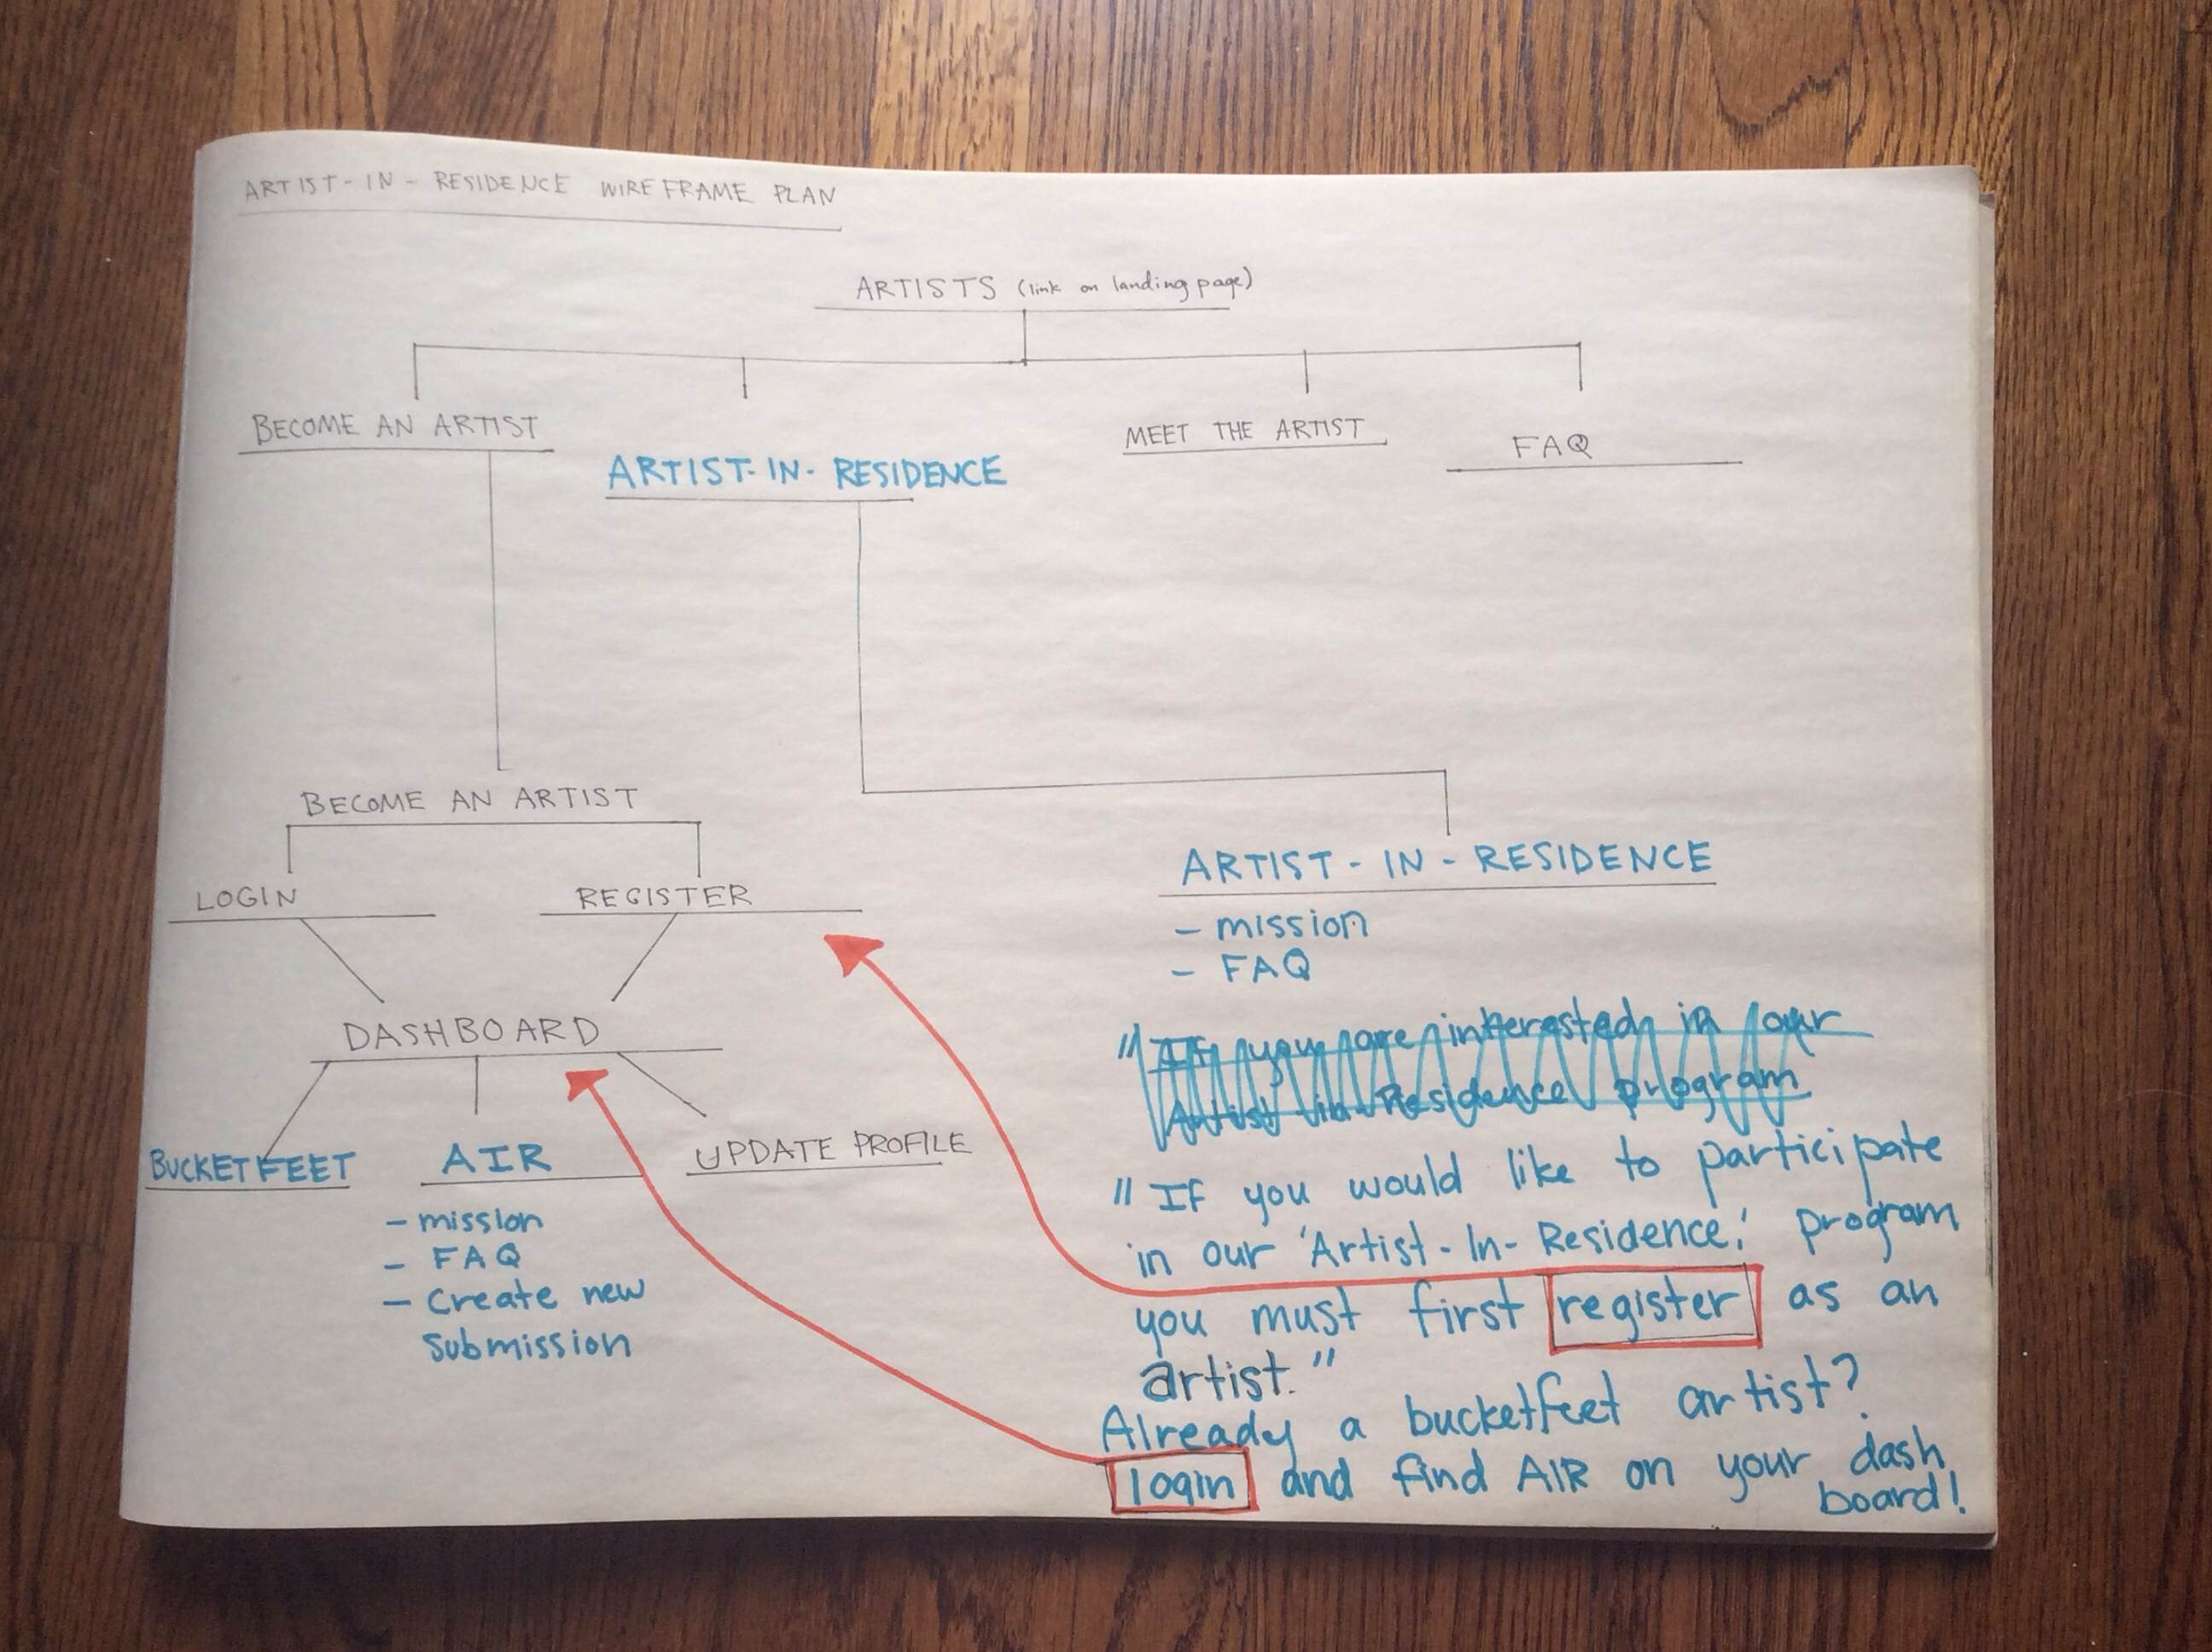 ARTIST-IN-RESIDENCE WIREFRAME PLAN
ARTISTS (link on landing page)
BECOME AN ARTIST
ARTIST-IN-RESIDENCE
MEET THE ARTIST
FAQ
BECOME AN ARTIST
LOGIN
REGISTER
DASHBOARD
BUCKETFEET
AIR
UPDATE PROFILE
- mission
- FAQ
- Create new
submission
ARTIST-IN-RESIDENCE
- mission
- FAQ
"If you are interested in our
Artist-in-Residence program
"If you would like to participate
in our 'Artist-In-Residence' program
you must first register as an
artist."
Already a bucketfeet artist?
login and find AIR on your dash
board!